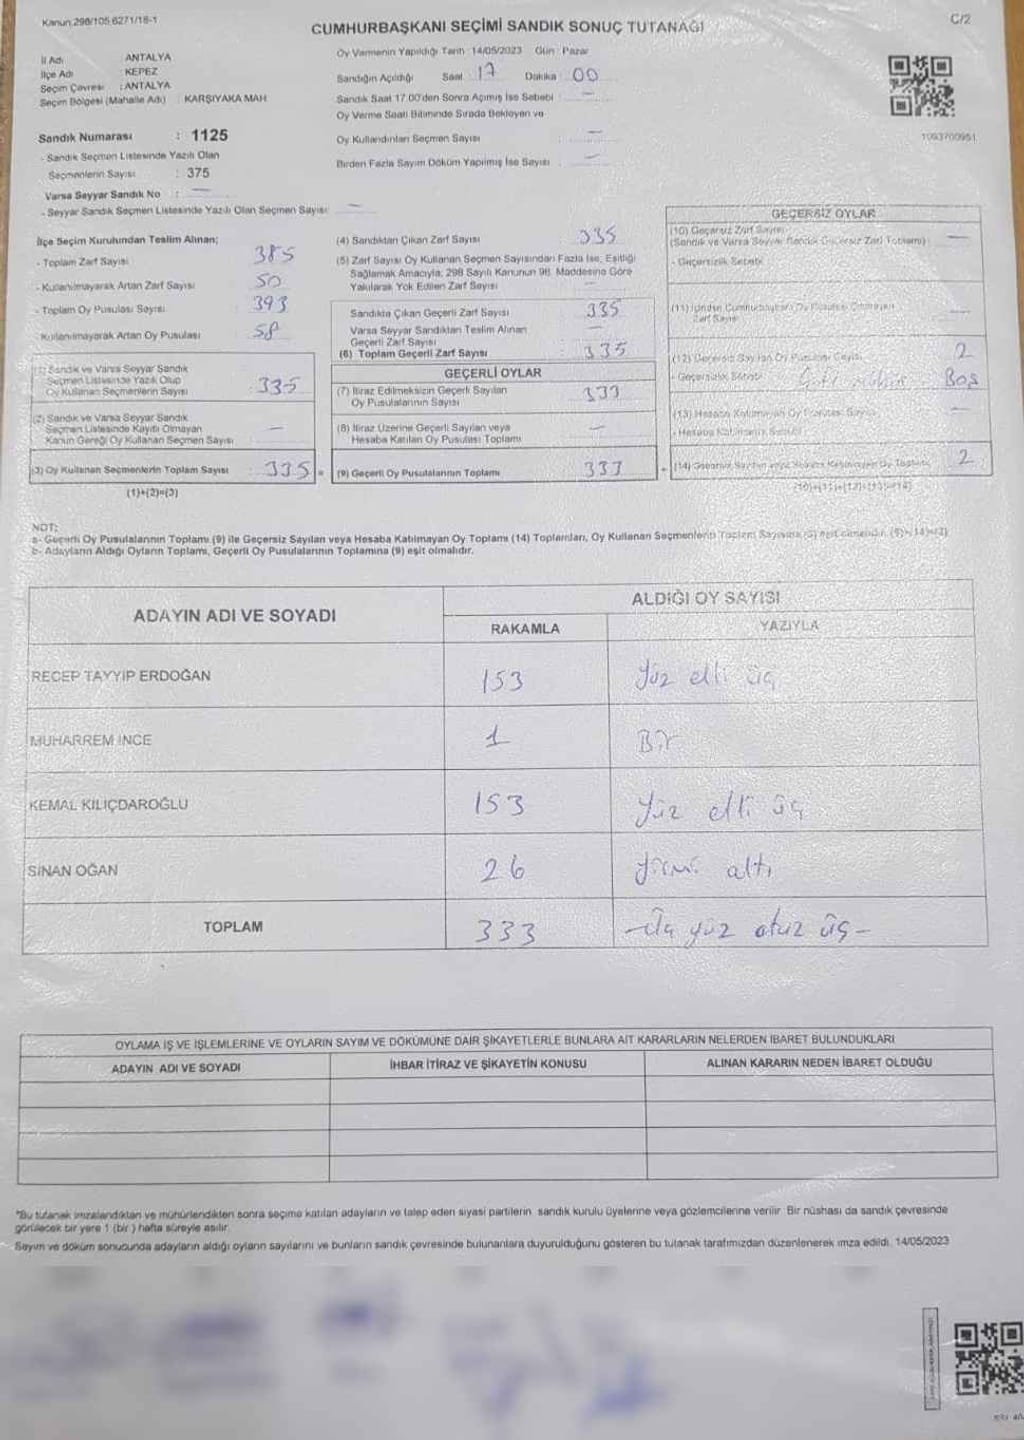 Kanun,298/105,6271/16-1
CUMHURBAŞKANI SEÇİMİ SANDIK SONUÇ TUTANAĞI
C/2
İl Adı ANTALYA
İlçe Adı : KEPEZ
Seçim Çevresi : ANTALYA
Seçim Bölgesi (Mahalle Adı) : KARŞIYAKA MAH
Sandık Numarası : 1125
- Sandık Seçmen Listesinde Yazılı Olan
Seçmenlerin Sayısı : 375
Varsa Seyyar Sandık No : —
- Seyyar Sandık Seçmen Listesinde Yazılı Olan Seçmen Sayısı : —
Oy Vermenin Yapıldığı Tarih : 14/05/2023 Gün : Pazar
Sandığın Açıldığı Saat 17 Dakika : 00
Sandık Saat 17.00'den Sonra Açılmış İse Sebebi : —
Oy Verme Saati Bitiminde Sırada Bekleyen ve
Oy Kullandırılan Seçmen Sayısı : —
Birden Fazla Sayım Döküm Yapılmış İse Sayısı : —
1093700951
İlçe Seçim Kurulundan Teslim Alınan;
- Toplam Zarf Sayısı : 385
- Kullanılmayarak Artan Zarf Sayısı : 50
- Toplam Oy Pusulası Sayısı : 393
Kullanılmayarak Artan Oy Pusulası : 58
(1) Sandık ve Varsa Seyyar Sandık
Seçmen Listesinde Yazılı Olup
Oy Kullanan Seçmenlerin Sayısı : 335
(2) Sandık ve Varsa Seyyar Sandık
Seçmen Listesinde Kayıtlı Olmayan
Kanun Gereği Oy Kullanan Seçmen Sayısı : —
(3) Oy Kullanan Seçmenlerin Toplam Sayısı : 335 =
(1)+(2)=(3)
(4) Sandıktan Çıkan Zarf Sayısı : 335
(5) Zarf Sayısı Oy Kullanan Seçmen Sayısından Fazla İse, Eşitliği
Sağlamak Amacıyla, 298 Sayılı Kanunun 98. Maddesine Göre
Yakılarak Yok Edilen Zarf Sayısı : —
Sandıkta Çıkan Geçerli Zarf Sayısı : 335
Varsa Seyyar Sandıktan Teslim Alınan
Geçerli Zarf Sayısı : —
(6) Toplam Geçerli Zarf Sayısı : 335
GEÇERLİ OYLAR
(7) İtiraz Edilmeksizin Geçerli Sayılan
Oy Pusulalarının Sayısı : 333
(8) İtiraz Üzerine Geçerli Sayılan veya
Hesaba Katılan Oy Pusulası Toplamı : —
(9) Geçerli Oy Pusulalarının Toplamı : 333 +
GEÇERSİZ OYLAR
(10) Geçersiz Zarf Sayısı
(Sandık ve Varsa Seyyar Sandık Geçersiz Zarf Toplamı) : —
- Geçersizlik Sebebi :
(11) İçinden Cumhurbaşkanı Oy Pusulası Çıkmayan
Zarf Sayısı : —
(12) Geçersiz Sayılan Oy Pusulası Sayısı : 2
- Geçersizlik Sebebi : Boş
(13) Hesaba Katılmayan Oy Pusulası Sayısı : —
- Hesaba Katılmama Sebebi :
(14) Geçersiz Sayılan veya Hesaba Katılmayan Oy Toplamı : 2
(10)+(11)+(12)+(13)=(14)
NOT:
a- Geçerli Oy Pusulalarının Toplamı (9) ile Geçersiz Sayılan veya Hesaba Katılmayan Oy Toplamı (14) Toplamları, Oy Kullanan Seçmenlerin Toplam Sayısına (3) eşit olmalıdır. (9)+(14)=(3)
b- Adayların Aldığı Oyların Toplamı, Geçerli Oy Pusulalarının Toplamına (9) eşit olmalıdır.
ADAYIN ADI VE SOYADI
ALDIĞI OY SAYISI
RAKAMLA YAZIYLA
RECEP TAYYİP ERDOĞAN 153 Yüz elli üç
MUHARREM İNCE 1 Bir
KEMAL KILIÇDAROĞLU 153 Yüz elli üç
SİNAN OĞAN 26 Yirmi altı
TOPLAM 333 - Üç yüz otuz üç -
OYLAMA İŞ VE İŞLEMLERİNE VE OYLARIN SAYIM VE DÖKÜMÜNE DAİR ŞİKAYETLERLE BUNLARA AİT KARARLARIN NELERDEN İBARET BULUNDUKLARI
ADAYIN ADI VE SOYADI İHBAR İTİRAZ VE ŞİKAYETİN KONUSU ALINAN KARARIN NEDEN İBARET OLDUĞU
*Bu tutanak imzalandıktan ve mühürlendikten sonra seçime katılan adayların ve talep eden siyasi partilerin sandık kurulu üyelerine veya gözlemcilerine verilir. Bir nüshası da sandık çevresinde
görülecek bir yere 1 (bir ) hafta süreyle asılır.
Sayım ve döküm sonucunda adayların aldığı oyların sayılarını ve bunların sandık çevresinde bulunanlara duyurulduğunu gösteren bu tutanak tarafımızdan düzenlenerek imza edildi. 14/05/2023